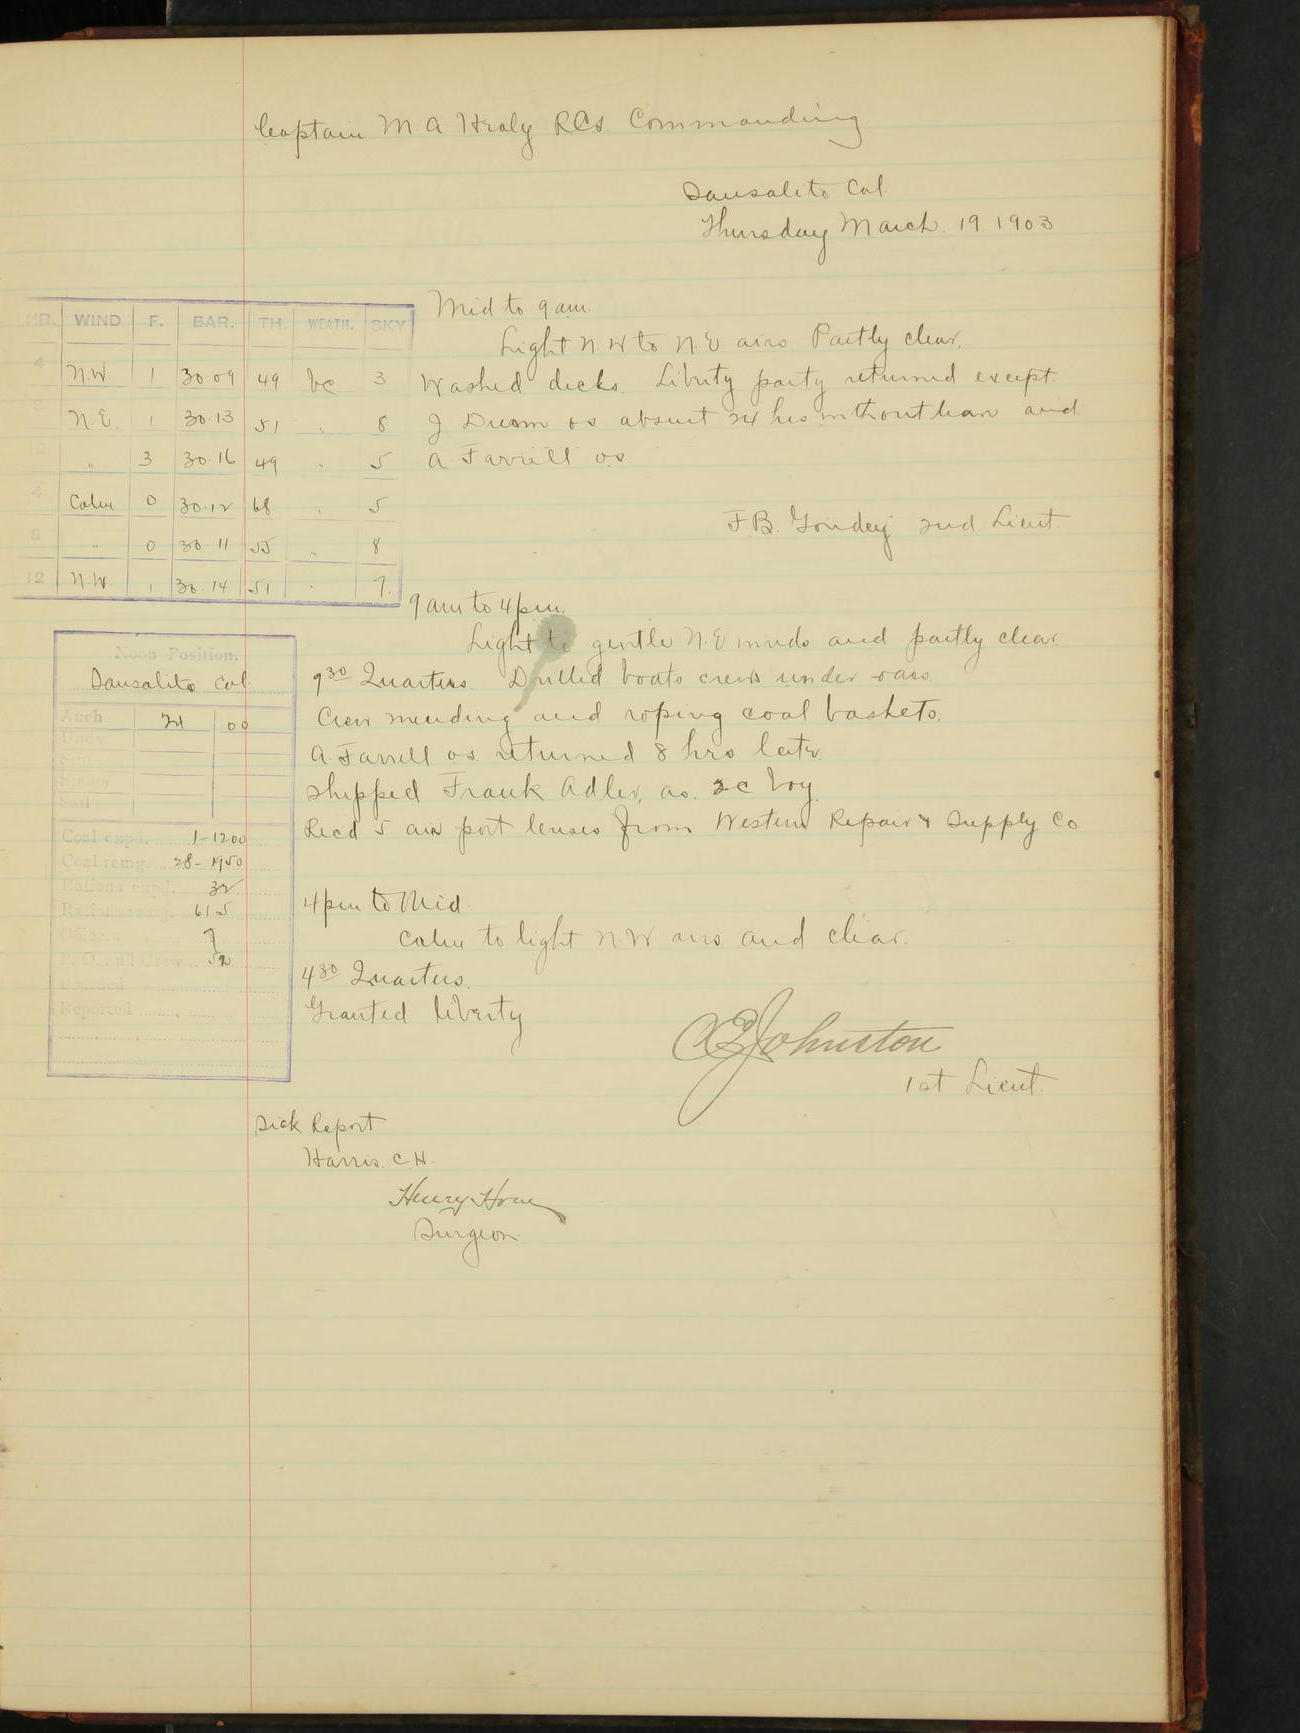 Captain M A Healy RCS Commanding
Sausalito Cal
Thursday March 19 1903
HR. WIND F. BAR. TH. WEATH. SKY
4 N.W 1 30 09 49 bc 3
N.E. 1 30.13 51 . 8
" 3 30.16 49 . 5
4 Calm 0 30.12 68 . 5
8 " 0 30.11 55 " 8
12 N.W. 1 30.14 51 . 7.
Mid to 9 am.
Light N.W to N.E airs Partly clear.
Washed decks. Liberty party returned except
J os absent 24 hrs without leave and
A Farrell os
F.B. 2nd Lieut
9 am to 4 pm.
Light to gentle N.E winds and partly clear
9 30 Quarters. Drilled boats crews under oars
Crew mending and roping coal baskets.
A. Farrell os returned 8 hrs later
Shipped Frank Adler, as 2c boy
Recd 5 air port lenses from Western Repair & Supply Co
4 pm to Mid
Calm to light N.W airs and clear.
4 30 Quarters.
Granted liberty
C E Johnston
1st Lieut.
Noon Position.
Sausalito Cal
Anch 24 00
Coal expd. 1-1200
Coal remg. 28-1950
Rations expd. 32
Rations remg. 615
Officers 7
P. O. and Crew 52
Reported
Sick Report
Harris. C.H.
Henry Horn
Surgeon